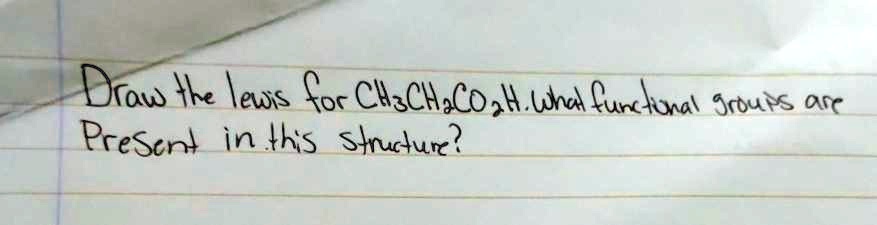 Draw the lewis for CH₃CH₂CO₂H. What functional groups are
Present in this structure?